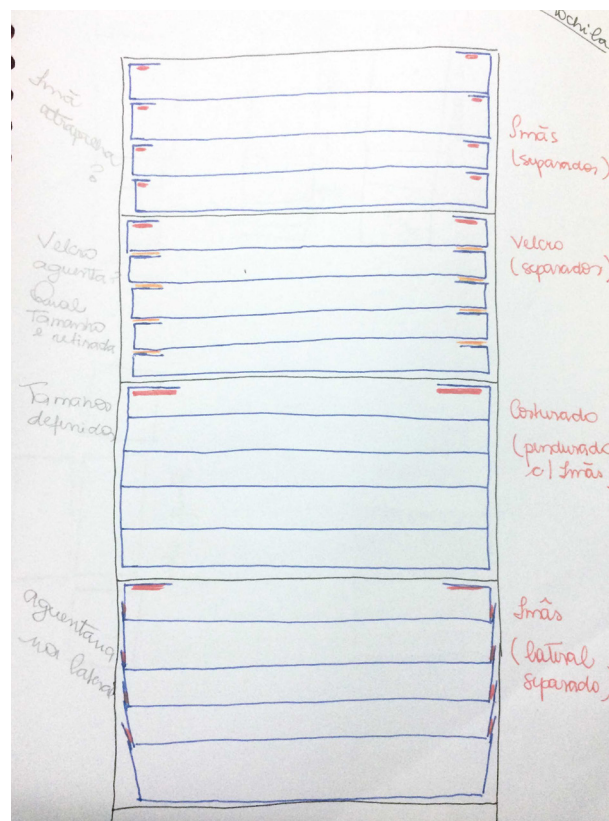 ochila
Imã
atrapalha
?
Imãs
(separados)
Velcro
aguenta?
Qual
Tamanho
e retirada
Velcro
(separados)
Tamanho
definido
Costurado
(pendurado
c/ Imãs)
aguentaria
na lateral
Imãs
(lateral
separado)